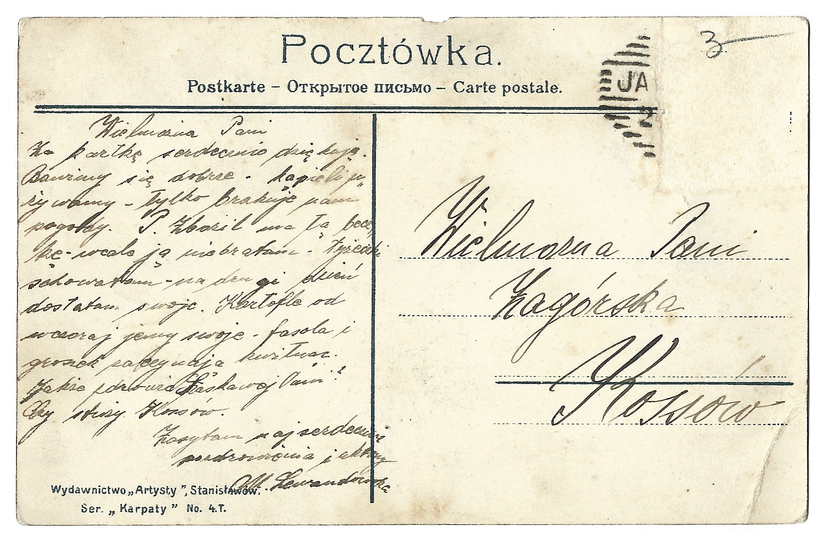 Pocztówka.
Postkarte – Открытое письмо – Carte postale.
3
JA
2
Wielmożna Pani
Za kartkę serdecznie dziękuję.
Bawimy się dobrze - kąpieli u
żywamy - tylko brakuje nam
pogody. P. ma tą becz
kę - wcale ją nie brałam -
schowałam - na drugi dzień
dostałam swoje. Kartofle od
wczoraj jemy swoje - fasola i
groszek zaczynają kwitnąć.
Jakże zdrowie Łaskawej Pani?
Czy służy Kossów.
Zasyłam najserdeczn
pozdrowienia i ukłony
M. Lewandowska
Wielmożna Pani
Zagórska
Kossów
Wydawnictwo „Artysty", Stanisławów.
Ser. „Karpaty" No. 4.T.